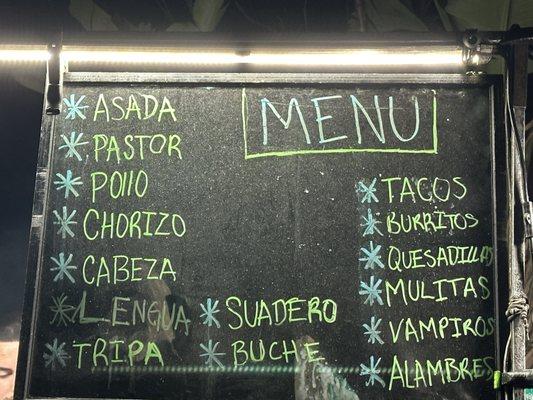 MENU
* ASADA
* PASTOR
* POllO
* CHORIZO
* CABEZA
* LENGUA
* TRIPA
* SUADERO
* BUCHE
* TACOS
* BURRITOS
* QUESADILLAS
* MULITAS
* VAMPIROS
* ALAMBRES